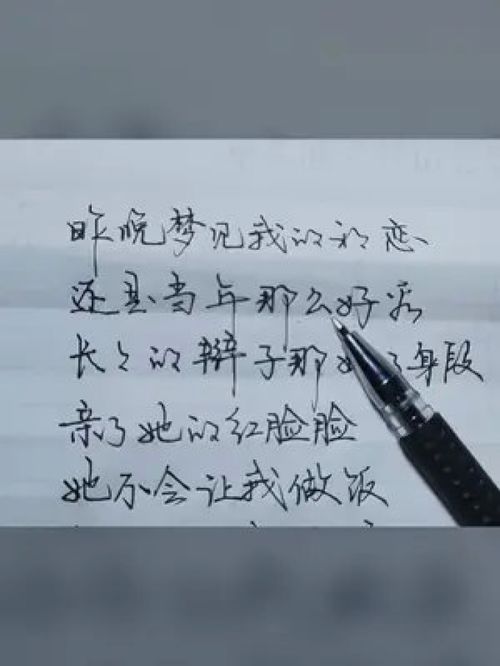 昨晚梦见我的初恋
还是当年那么好看
长长的辫子那 身段
亲了她的红脸脸
她不会让我做饭